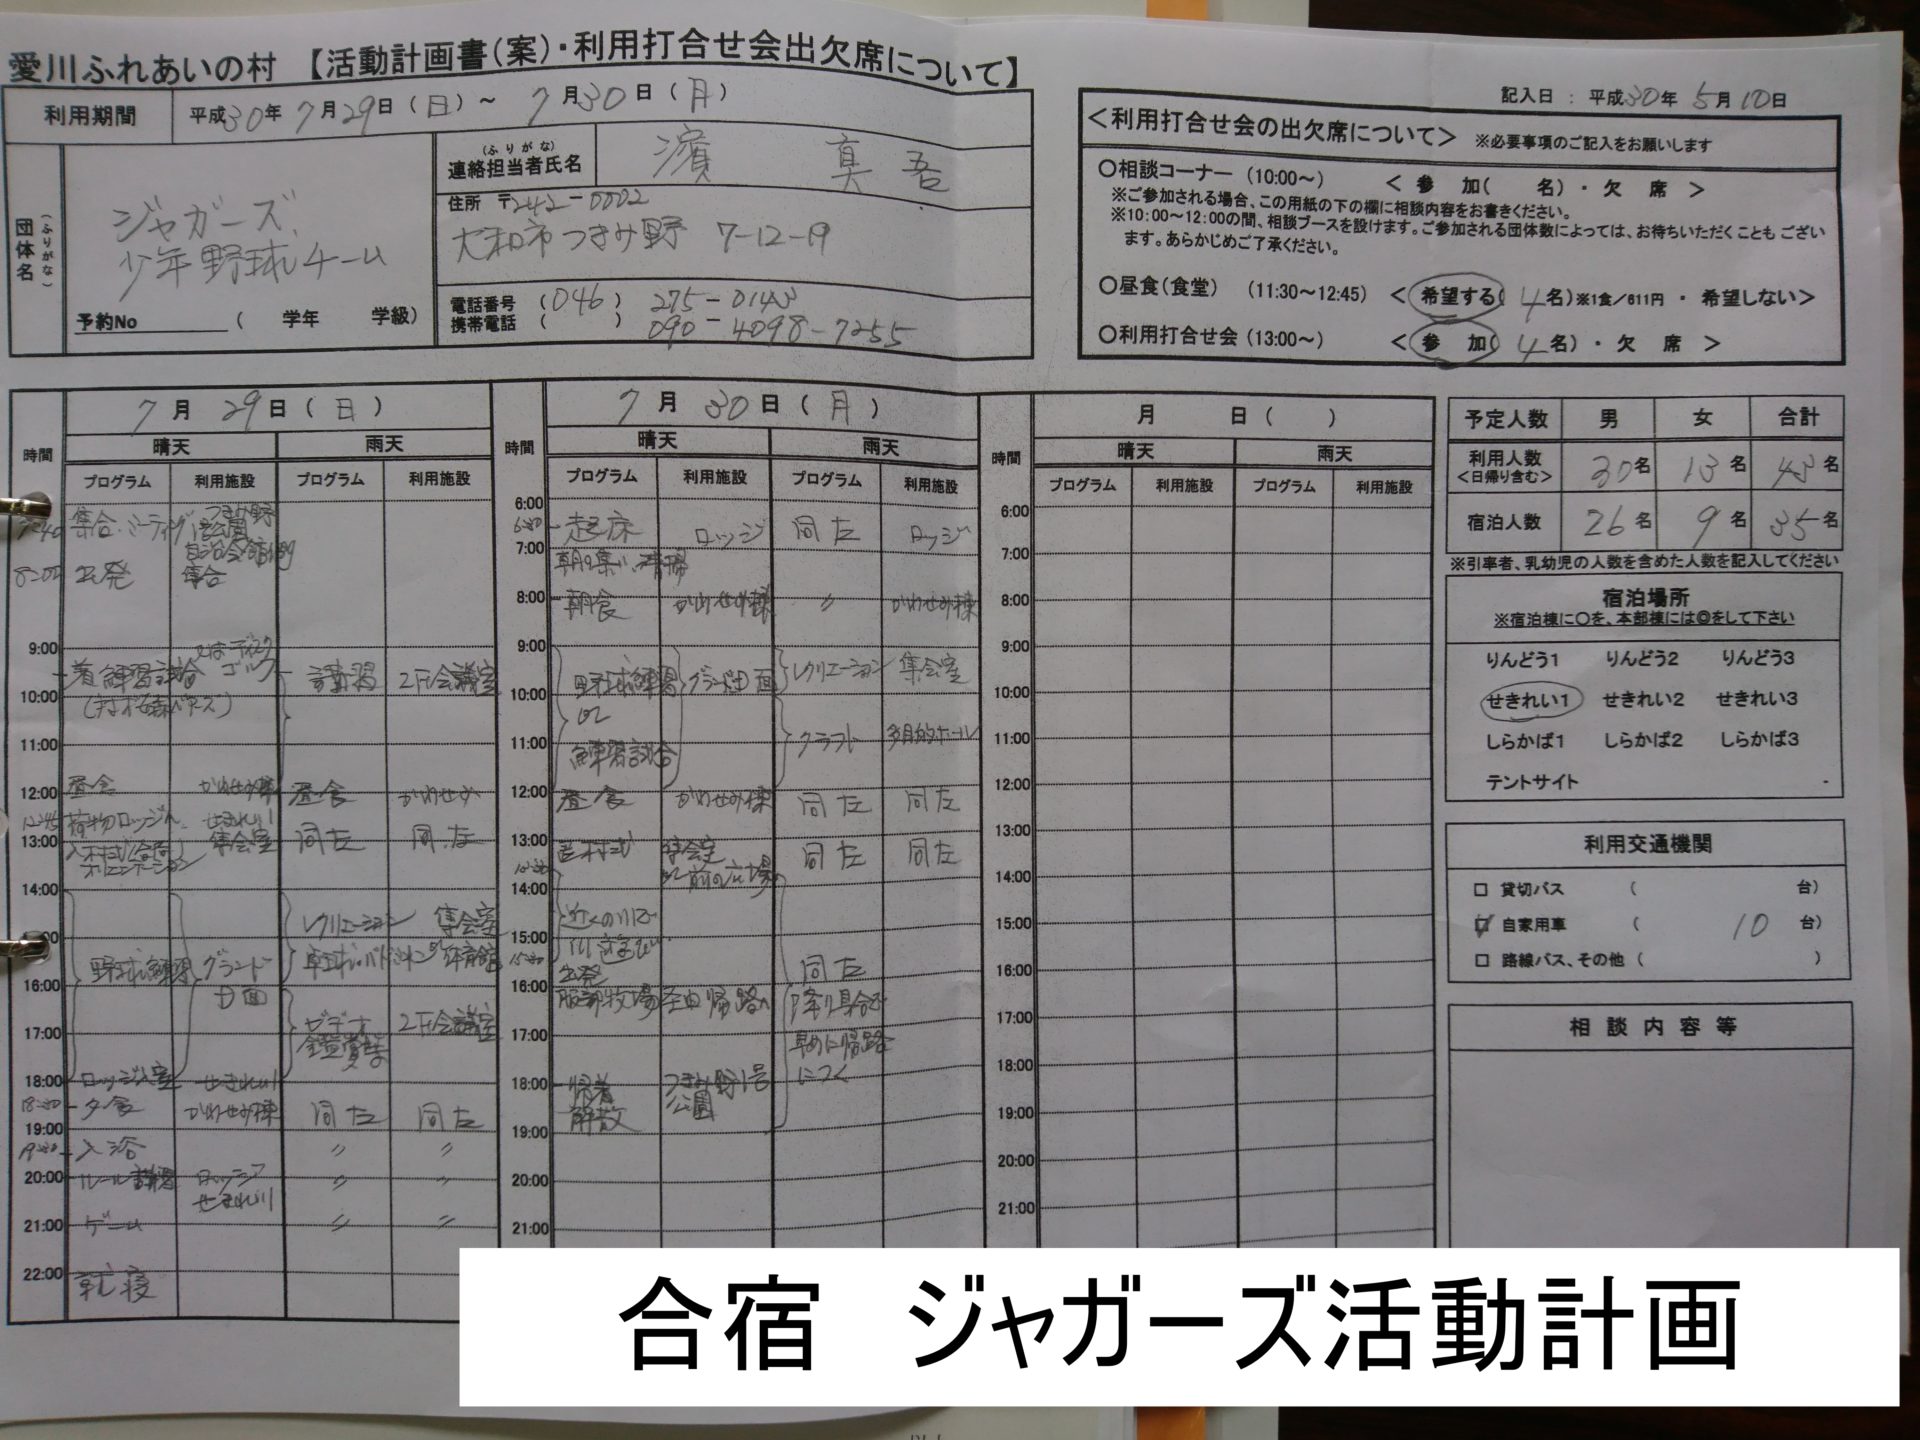 愛川ふれあいの村 【活動計画書(案)・利用打合せ会出欠席について】
利用期間 平成30年 7月29日(日)～ 7月30日(月)
記入日 : 平成30年 5月10日
団体名
(ふりがな)
ジャガーズ
少年野球チーム
予約No ( 学年 学級)
(ふりがな)
連絡担当者氏名 濱 真吾
住所 〒242-0002
大和市つきみ野 7-12-19
電話番号 (046) 275-0143
携帯電話 ( ) 090-4098-7255
＜利用打合せ会の出欠席について＞ ※必要事項のご記入をお願いします
○相談コーナー (10:00～) ＜ 参 加( 名)・欠 席 ＞
※ご参加される場合、この用紙の下の欄に相談内容をお書きください。
※10:00～12:00の間、相談ブースを設けます。ご参加される団体数によっては、お待ちいただくことも ござい
ます。あらかじめご了承ください。
○昼食(食堂) (11:30～12:45) ＜ 希望する( 4名)※1食/611円 ・ 希望しない＞
○利用打合せ会 (13:00～) ＜ 参 加( 4名)・欠 席 ＞
時間 7月29日(日)
晴天 雨天
プログラム 利用施設 プログラム 利用施設
7:40 集合・ミーティング つきみ野
1号公園
自治会館
8:00 出発 集合
9:00
着 練習試合 ゴルフ 講習 2F会議室
10:00
11:00
12:00 昼食 かわせみ棟 昼食 かわせみ
12:45 荷物ロッジへ せきれい1
13:00 入村式(合同) 集会室 同左 同左
オリエンテーション
14:00
レクリエーション 集会室
卓球・バドミントン 体育館
野球練習 グランド
16:00
ビデオ 2F会議室
17:00 鑑賞
18:00 ロッジ入室 せきれい1
18:30 夕食 かわせみ棟 同左 同左
19:00
19:30 入浴 〃 〃
20:00 ルール講習 ロッジ 〃 〃
せきれい1
21:00 ゲーム 〃 〃
22:00 就寝
時間 7月30日(月)
晴天 雨天
プログラム 利用施設 プログラム 利用施設
6:00
6:30 起床 ロッジ 同左 ロッジ
7:00 朝の集い、清掃
8:00 朝食 かわせみ棟 〃 かわせみ棟
9:00
野球練習 レクリエーション 集会室
10:00
or
11:00 練習試合 クラフト 多目的ホール
12:00 昼食 かわせみ棟 同左 同左
13:00 退村式 集会室 同左 同左
or 前の広場
14:00
近くの川で
15:00 川遊び
15:30 出発 同左
16:00 服部牧場 経由帰路へ 降り具合で
17:00 早めに帰路
につく
18:00 帰着 つきみ野1号
解散 公園
19:00
20:00
21:00
時間 月 日( )
晴天 雨天
プログラム 利用施設 プログラム 利用施設
6:00
7:00
8:00
9:00
10:00
11:00
12:00
13:00
14:00
15:00
16:00
17:00
18:00
19:00
20:00
21:00
予定人数 男 女 合計
利用人数 30名 13名 43名
＜日帰り含む＞
宿泊人数 26名 9名 35名
※引率者、乳幼児の人数を含めた人数を記入してください
宿泊場所
※宿泊棟に○を、本部棟には◎をして下さい
りんどう1 りんどう2 りんどう3
せきれい1 せきれい2 せきれい3
しらかば1 しらかば2 しらかば3
テントサイト
利用交通機関
□ 貸切バス ( 台)
☑ 自家用車 ( 10 台)
□ 路線バス、その他 ( )
相談内容等
合宿 ジャガーズ活動計画